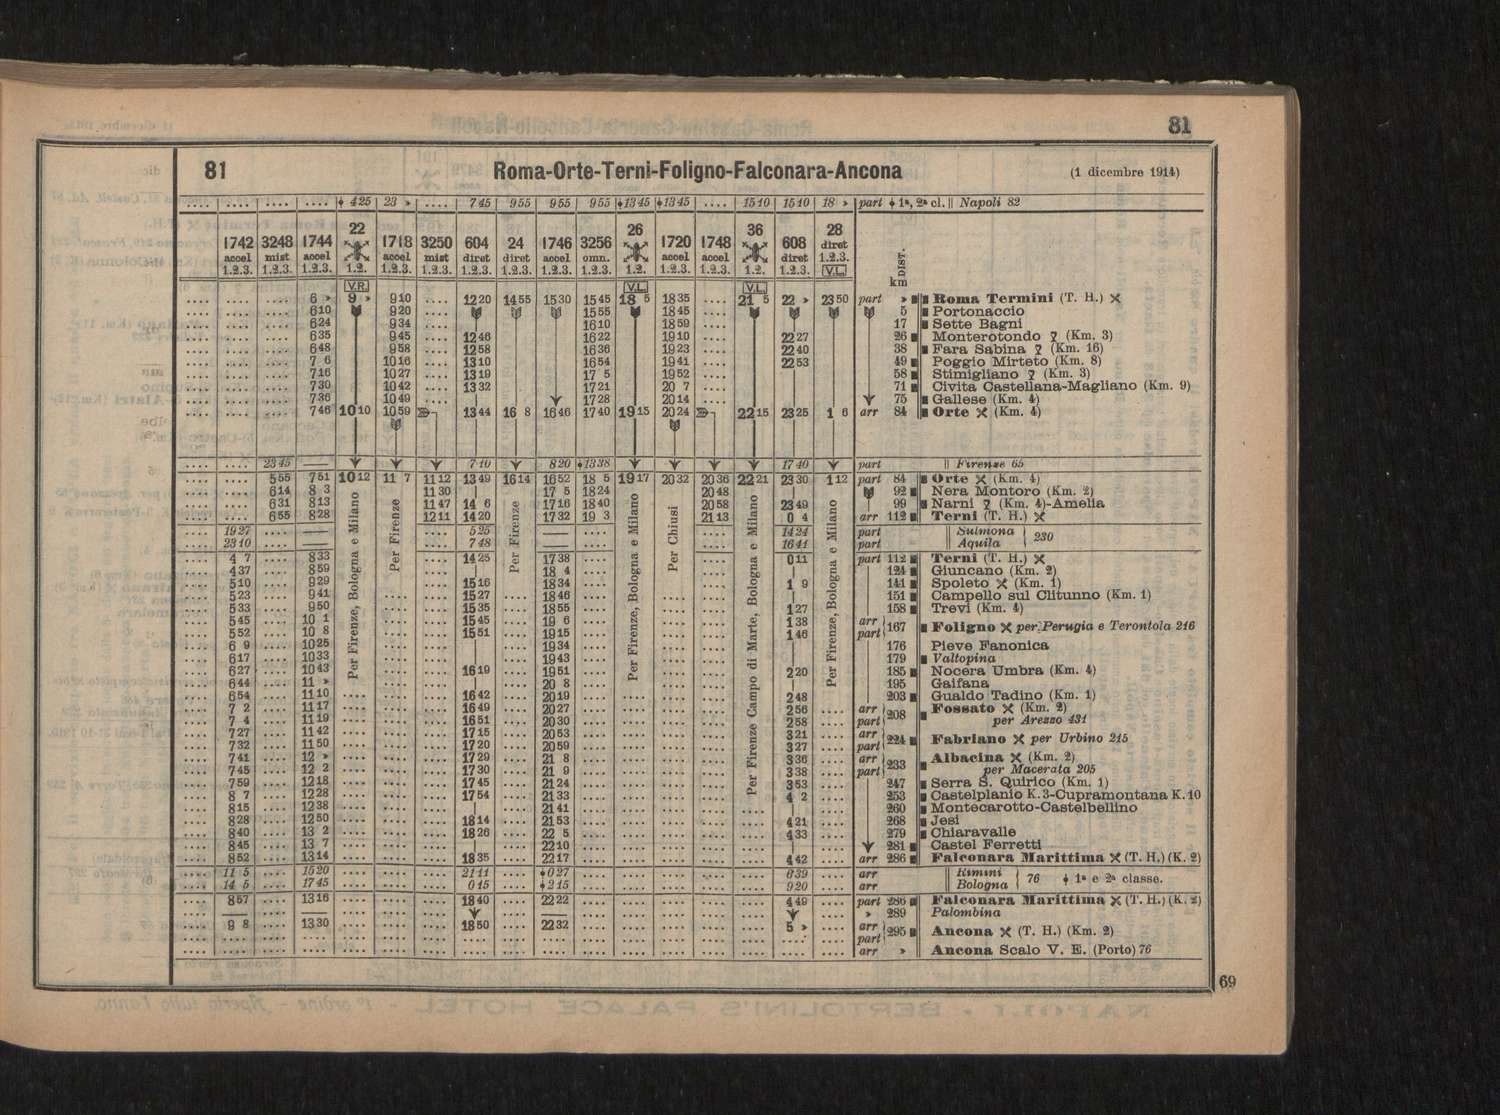 81
81 Roma-Orte-Terni-Foligno-Falconara-Ancona (1 dicembre 1914)
.... .... .... .... 4 25 23 » .... 7 45 9 55 9 55 9 55 13 45 13 45 .... 15 10 15 10 18 » part 1ª, 2ª cl. Napoli 82
1742 accel 1.2.3. 3248 mist 1.2.3. 1744 accel 1.2.3. 22 1.2. 1718 accel 1.2.3. 3250 mist 1.2.3. 604 diret 1.2.3. 24 diret 1.2.3. 1746 accel 1.2.3. 3256 omn. 1.2.3. 26 1.2. 1720 accel 1.2.3. 1748 accel 1.2.3. 36 1.2. 608 diret 1.2.3. 28 diret 1.2.3. V.L. km DIST.
V.R. V.L. V.L.
.... .... .... 6 » 9 » 9 10 .... 12 20 14 55 15 30 15 45 18 5 18 35 .... 21 5 22 » 23 50 part » Roma Termini (T. H.)
.... .... .... 6 10 9 20 .... 15 55 18 45 .... 5 Portonaccio
.... .... .... 6 24 9 34 .... 16 10 18 59 .... 17 Sette Bagni
.... .... .... 6 35 9 45 .... 12 46 16 22 19 10 .... 22 27 26 Monterotondo (Km. 3)
.... .... .... 6 48 9 58 .... 12 58 16 36 19 23 .... 22 40 38 Fara Sabina (Km. 16)
.... .... .... 7 6 10 16 .... 13 10 16 54 19 41 .... 22 53 49 Poggio Mirteto (Km. 8)
.... .... .... 7 16 10 27 .... 13 19 17 5 19 52 .... 58 Stimigliano (Km. 3)
.... .... .... 7 30 10 42 .... 13 32 17 21 20 7 .... 71 Civita Castellana-Magliano (Km. 9)
.... .... .... 7 36 10 49 .... 17 28 20 14 .... 75 Gallese (Km. 4)
.... .... .... 7 46 10 10 10 59 13 44 16 8 16 46 17 40 19 15 20 24 22 15 23 25 1 6 arr 84 Orte (Km. 4)
.... .... 23 45 — 7 10 8 20 13 38 17 40 part Firenze 65
.... .... 5 55 7 51 10 12 11 7 11 12 13 49 16 14 16 52 18 5 19 17 20 32 20 36 22 21 23 30 1 12 part 84 Orte (Km. 4)
.... .... 6 14 8 3 11 30 17 5 18 24 20 48 92 Nera Montoro (Km. 2)
.... .... 6 31 8 13 11 47 14 6 17 16 18 40 20 58 23 49 99 Narni (Km. 4)-Amelia
.... .... 6 55 8 28 12 11 14 20 17 32 19 3 21 13 0 4 arr 112 Terni (T. H.)
.... 19 27 .... — .... 5 25 — .... .... 14 24 part Sulmona 230
.... 23 10 .... — .... 7 48 — .... .... 16 41 part Aquila
.... 4 7 .... 8 33 .... 14 25 17 38 .... .... 0 11 part 112 Terni (T. H.)
.... 4 37 .... 8 59 .... 18 4 .... .... 124 Giuncano (Km. 2)
.... 5 10 .... 9 29 .... 15 16 18 34 .... .... 1 9 141 Spoleto (Km. 1)
.... 5 23 .... 9 41 .... .... 15 27 .... 18 46 .... .... .... 151 Campello sul Clitunno (Km. 1)
.... 5 33 .... 9 50 .... .... 15 35 .... 18 55 .... .... .... 1 27 158 Trevi (Km. 4)
.... 5 45 .... 10 1 .... .... 15 45 .... 19 6 .... .... .... 1 38 arr
.... 5 52 .... 10 8 .... .... 15 51 .... 19 15 .... .... .... 1 46 part 167 Foligno per Perugia e Terontola 216
.... 6 9 .... 10 25 .... .... .... 19 34 .... .... .... 176 Pieve Fanonica
.... 6 17 .... 10 33 .... .... .... 19 43 .... .... .... 179 Valtopina
.... 6 27 .... 10 43 .... .... 16 19 .... 19 51 .... .... .... 2 20 185 Nocera Umbra (Km. 4)
.... 6 44 .... 11 » .... .... .... 20 8 .... .... .... 195 Gaifana
.... 6 54 .... 11 10 .... .... .... 16 42 .... 20 19 .... .... .... .... 2 48 203 Gualdo Tadino (Km. 1)
.... 7 2 .... 11 17 .... .... .... 16 49 .... 20 27 .... .... .... .... 2 56 .... arr 208 Fossato (Km. 2)
.... 7 4 .... 11 19 .... .... .... 16 51 .... 20 30 .... .... .... .... 2 58 .... part per Arezzo 431
.... 7 27 .... 11 42 .... .... .... 17 15 .... 20 53 .... .... .... .... 3 21 .... arr
.... 7 32 .... 11 50 .... .... .... 17 20 .... 20 59 .... .... .... .... 3 27 .... part 224 Fabriano per Urbino 215
.... 7 41 .... 12 » .... .... .... 17 29 .... 21 8 .... .... .... .... 3 36 .... arr 233 Albacina (Km. 2)
.... 7 45 .... 12 2 .... .... .... 17 30 .... 21 9 .... .... .... .... 3 38 .... part per Macerata 205
.... 7 59 .... 12 18 .... .... .... 17 45 .... 21 24 .... .... .... .... 3 53 .... 247 Serra S. Quirico (Km. 1)
.... 8 7 .... 12 28 .... .... .... 17 54 .... 21 33 .... .... .... .... 4 2 .... 253 Castelplanio K.3-Cupramontana K.10
.... 8 15 .... 12 38 .... .... .... .... 21 41 .... .... .... .... .... .... 260 Montecarotto-Castelbellino
.... 8 28 .... 12 50 .... .... .... 18 14 .... 21 53 .... .... .... .... .... 4 21 .... 268 Jesi
.... 8 40 .... 13 2 .... .... .... 18 26 .... 22 5 .... .... .... .... .... 4 33 .... 279 Chiaravalle
.... 8 45 .... 13 7 .... .... .... .... 22 10 .... .... .... .... .... .... 281 Castel Ferretti
.... 8 52 .... 13 14 .... .... .... 18 35 .... 22 17 .... .... .... .... .... 4 42 .... arr 286 Falconara Marittima (T. H.) (K. 2)
.... 11 5 .... 15 20 .... .... .... 21 11 .... 0 27 .... .... .... .... .... 6 39 .... arr Rimini 76 1ª e 2ª classe.
.... 14 5 .... 17 45 .... .... .... 0 15 .... 2 15 .... .... .... .... .... 9 20 .... arr Bologna
.... 8 57 .... 13 16 .... .... .... 18 40 .... 22 22 .... .... .... .... .... 4 49 .... part 286 Falconara Marittima (T. H.) (K. 2)
.... — .... — .... .... .... .... — .... .... .... .... .... .... » 289 Palombina
.... 9 8 .... 13 30 .... .... .... 18 50 .... 22 32 .... .... .... .... .... 5 » .... arr 295 Ancona (T. H.) (Km. 2)
.... .... .... .... .... .... .... .... .... .... .... .... .... .... .... .... .... part
.... .... .... .... .... .... .... .... .... .... .... .... .... .... .... .... .... arr » Ancona Scalo V. E. (Porto) 76
Per Firenze, Bologna e Milano
Per Firenze
Per Firenze
Per Firenze, Bologna e Milano
Per Chiusi
Per Firenze Campo di Marte, Bologna e Milano
Per Firenze, Bologna e Milano
69